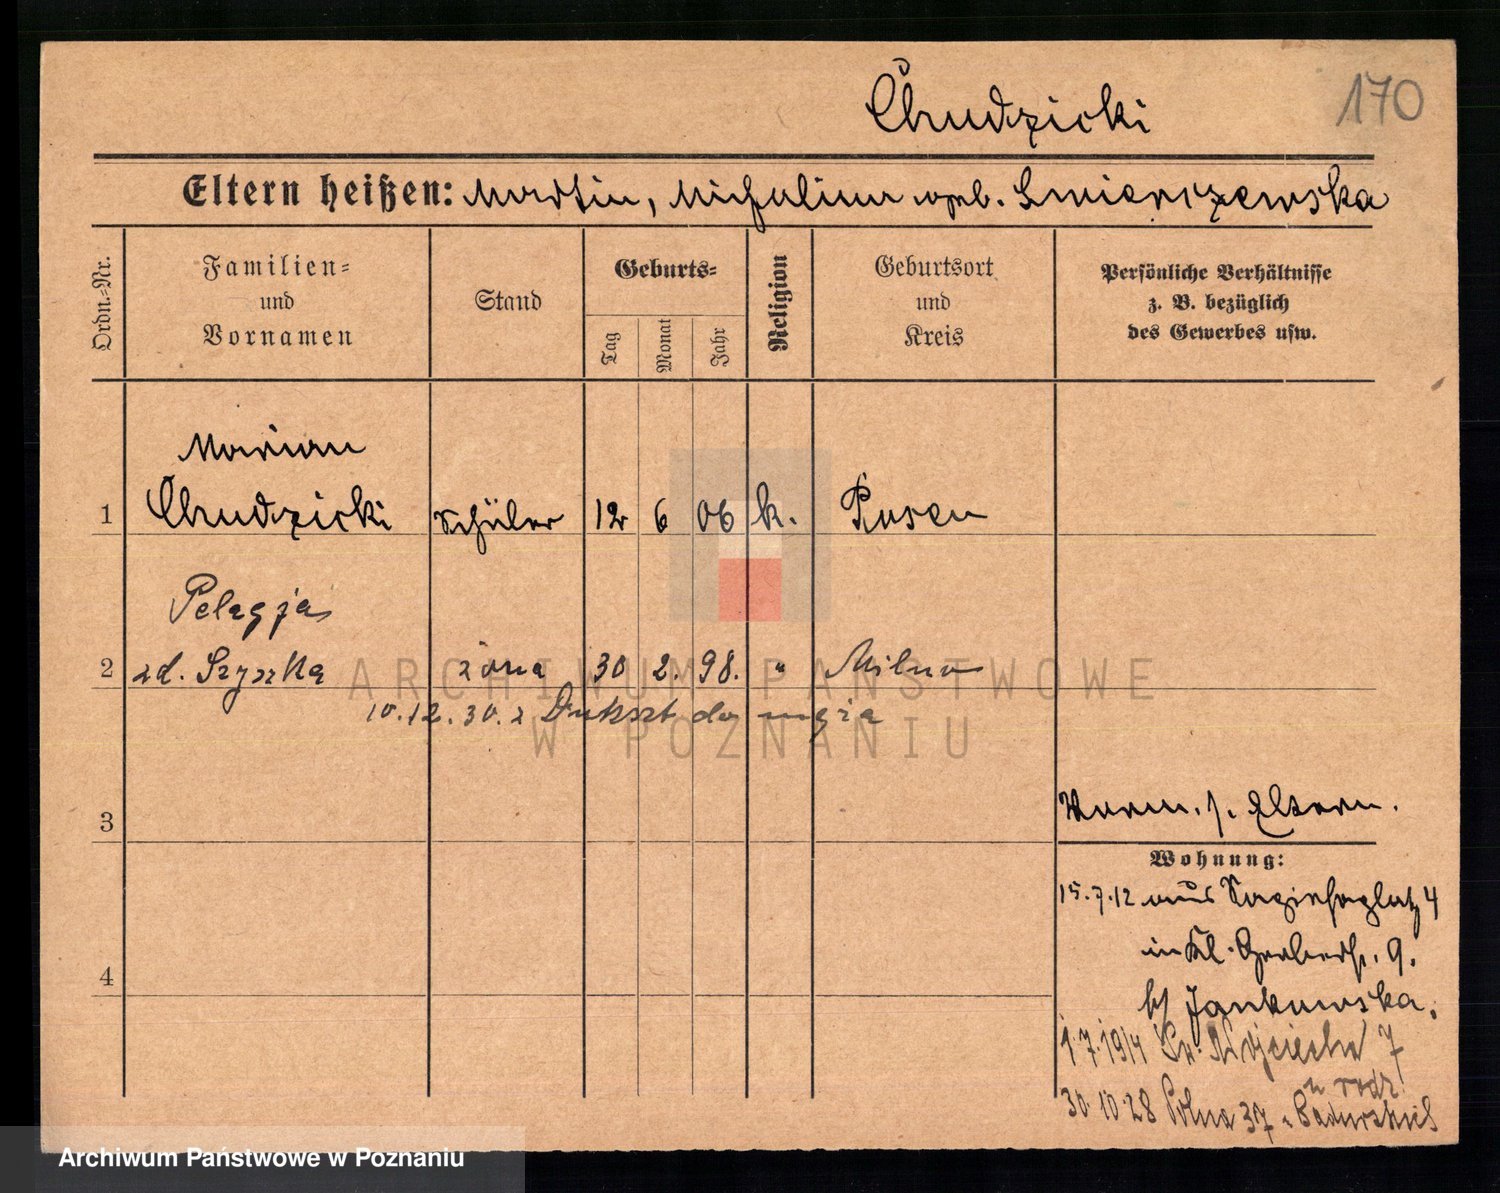 Chudzicki
170
Eltern heißen: Martin, Michalina geb. Smierczewska
Ordn.-Nr.
Familien-
und
Vornamen
Stand
Geburts-
Tag
Monat
Jahr
Religion
Geburtsort
und
Kreis
Persönliche Verhältnisse
z. B. bezüglich
des Gewerbes usw.
Marian
1 Chudzicki Schüler 12 6 06 k. Posen
Pelagja
2 zd. Szyszka żona 30 2. 98. " Milno
10.12.30. z do męża
3
Vorm. s. Eltern.
Wohnung:
15.7.12 aus Sapiehaplatz 4
in Kl. Gerberstr. 9.
b/ Jankowska.
4
1.7.1914 Św. Wojciecha 7
u rodz.
30.10.28 Polna 37
ARCHIWUM PAŃSTWOWE
W POZNANIU
Archiwum Państwowe w Poznaniu